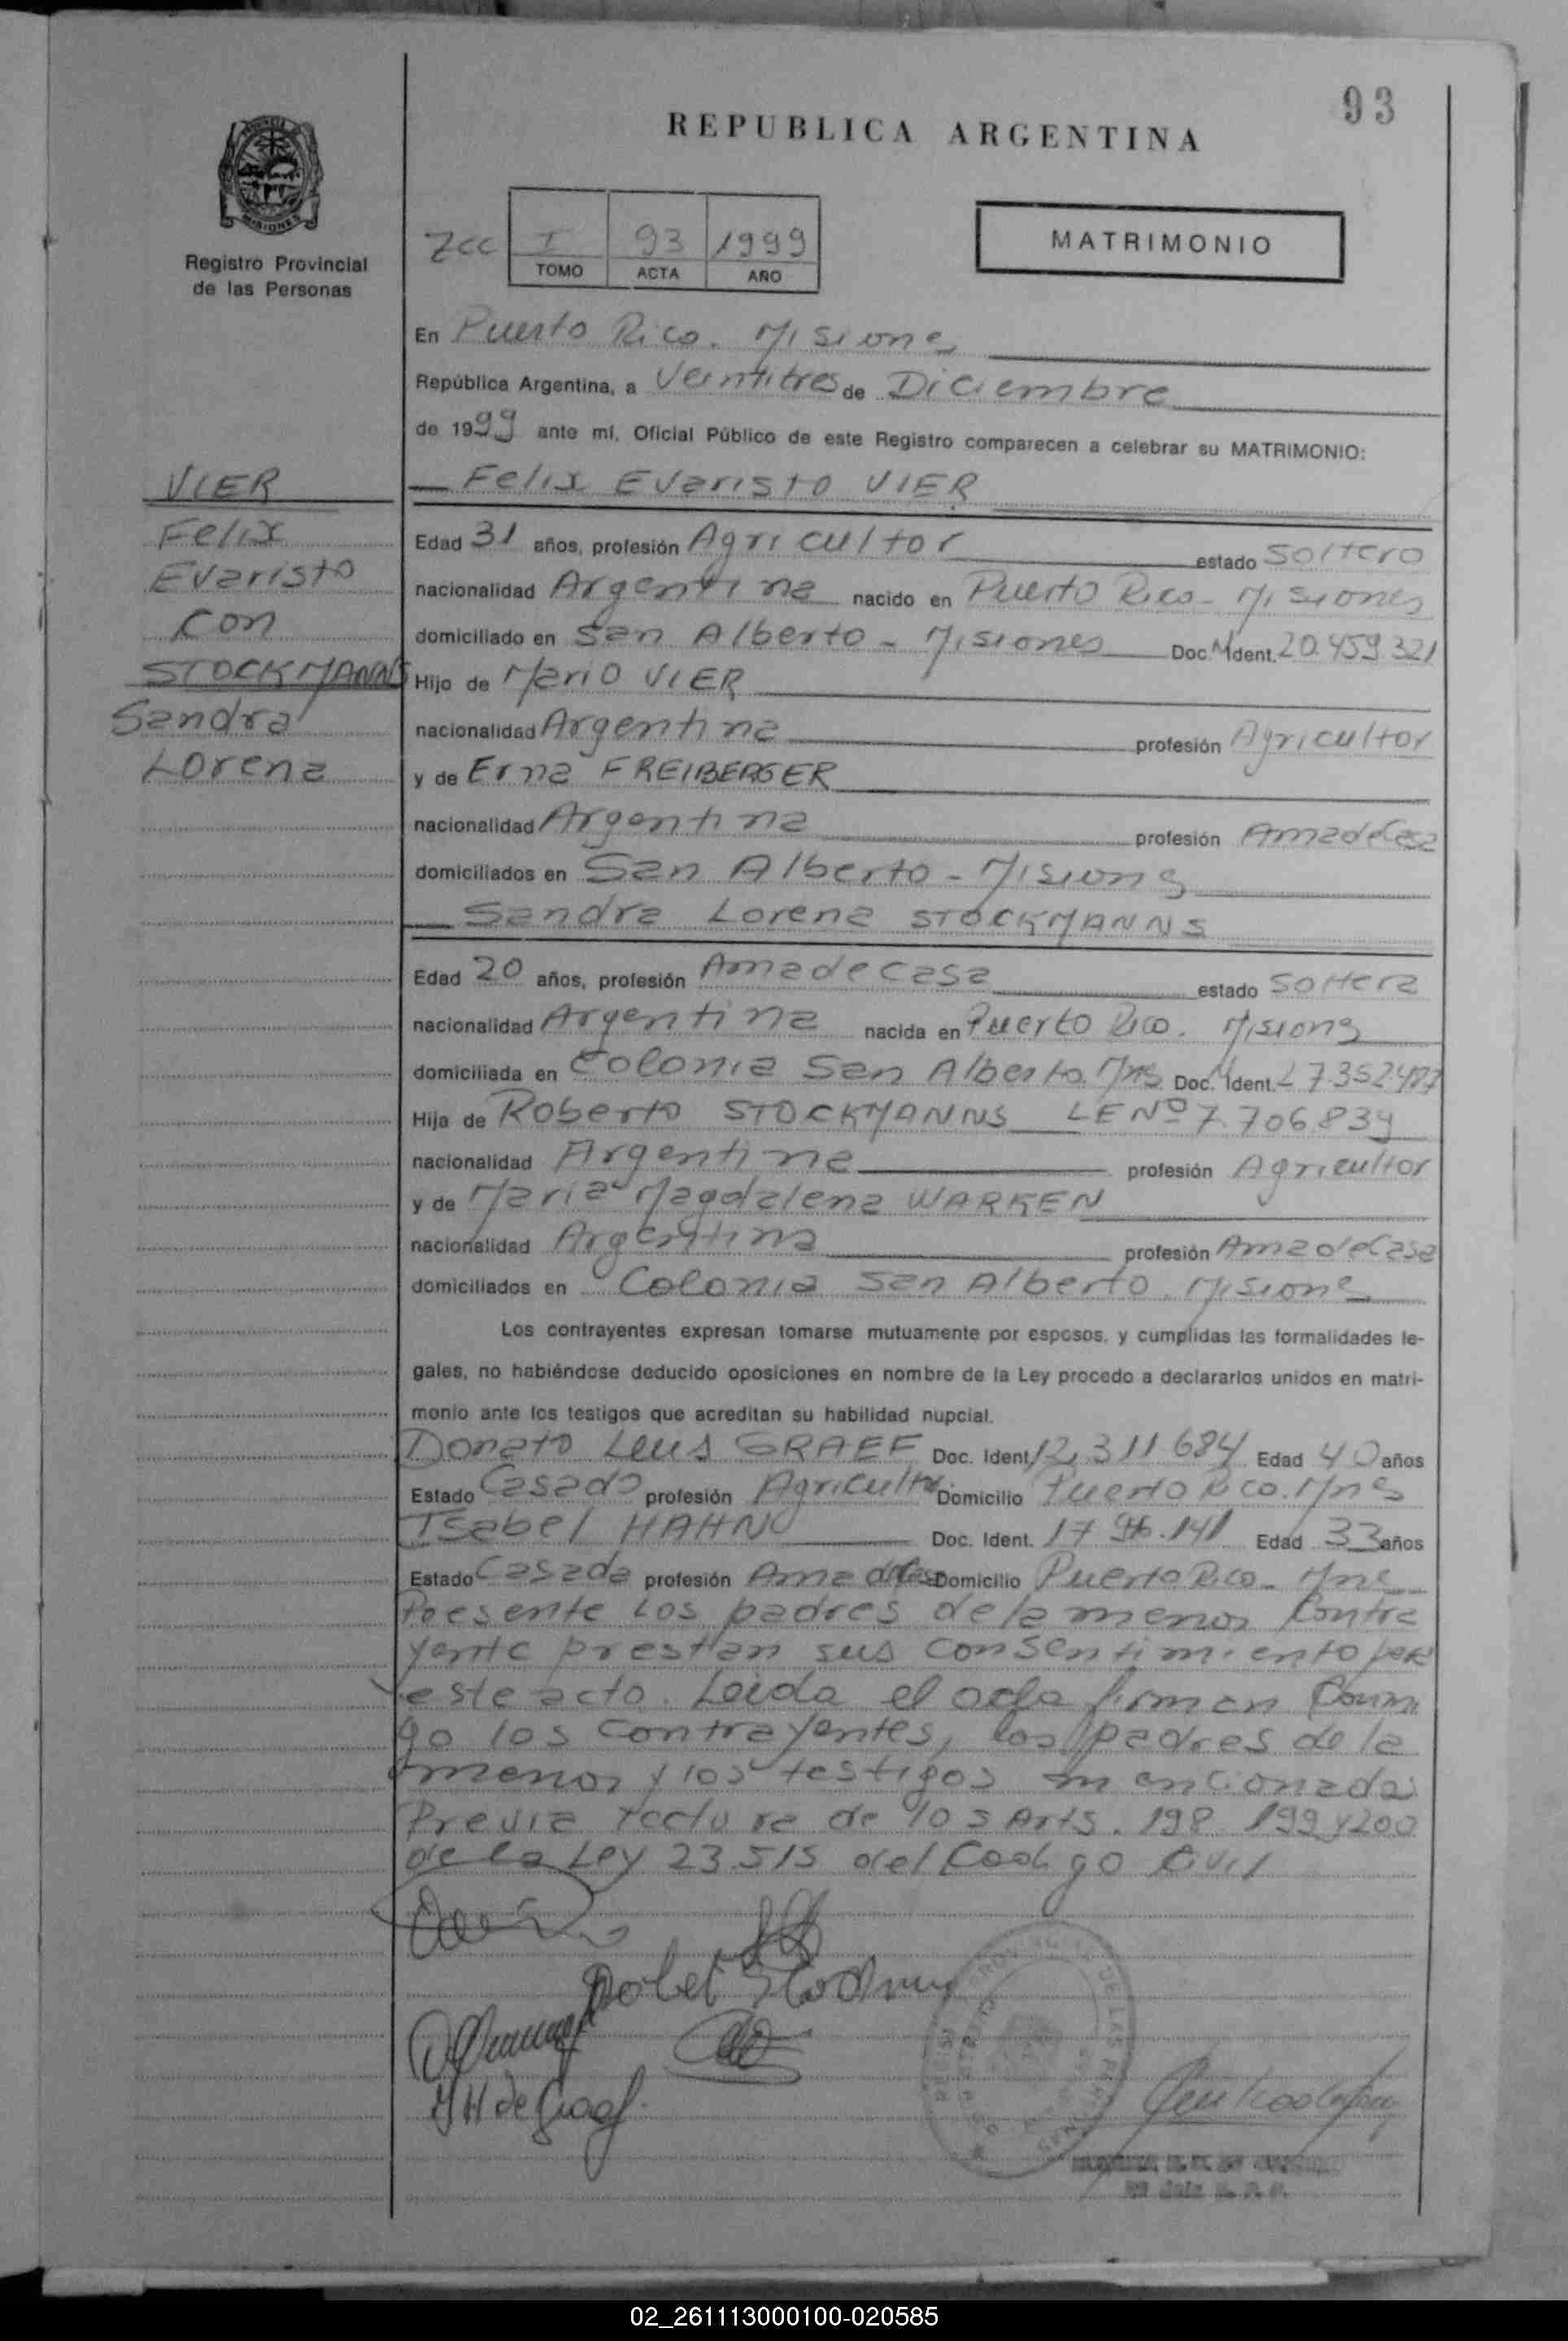 93
REPUBLICA ARGENTINA
MISIONES
Registro Provincial
de las Personas
Zcc I 93 1999
TOMO ACTA AÑO
MATRIMONIO
En Puerto Rico. Misiones
República Argentina, a Veintitres de Diciembre
de 1999 ante mí, Oficial Público de este Registro comparecen a celebrar su MATRIMONIO:
VIER
Felix
Evaristo
con
STOCKMANNS
Sandra
Lorena
Felix Evaristo VIER
Edad 31 años, profesión Agricultor estado Soltero
nacionalidad Argentina nacido en Puerto Rico - Misiones
domiciliado en San Alberto - Misiones Doc. M Ident. 20.459.321
Hijo de Mario VIER
nacionalidad Argentina profesión Agricultor
y de Erna FREIBERGER
nacionalidad Argentina profesión Ama de Casa
domiciliados en San Alberto - Misiones
Sandra Lorena STOCKMANNS
Edad 20 años, profesión Ama de Casa estado Soltera
nacionalidad Argentina nacida en Puerto Rico. Misiones
domiciliada en Colonia San Alberto. Mns Doc. Ident.
Hija de Roberto STOCKMANNS LE Nº 7.706.839
nacionalidad Argentina profesión Agricultor
y de Maria Magdalena WARKEN
nacionalidad Argentina profesión Ama de Casa
domiciliados en Colonia San Alberto. Misiones
Los contrayentes expresan tomarse mutuamente por esposos, y cumplidas las formalidades le-
gales, no habiéndose deducido oposiciones en nombre de la Ley procedo a declararlos unidos en matri-
monio ante los testigos que acreditan su habilidad nupcial.
Donato Luis GRAEF Doc. Ident. 12.311.684 Edad 40 años
Estado Casado profesión Agricultor Domicilio Puerto Rico. Mnes
Isabel HAHN Doc. Ident. Edad 33 años
Estado Casada profesión Ama de Casa Domicilio Puerto Rico - Mnes
Presente Los padres de la menor Contra
yente prestan sus consentimiento para
este acto. Leida el acta firman Conmi
go los contrayentes, los padres de la
menor y los testigos mencionados
Previa lectura de los Arts. 198. 199 y 200
de la Ley 23.515 del Codigo Civil
M H de Graef
02_261113000100-020585